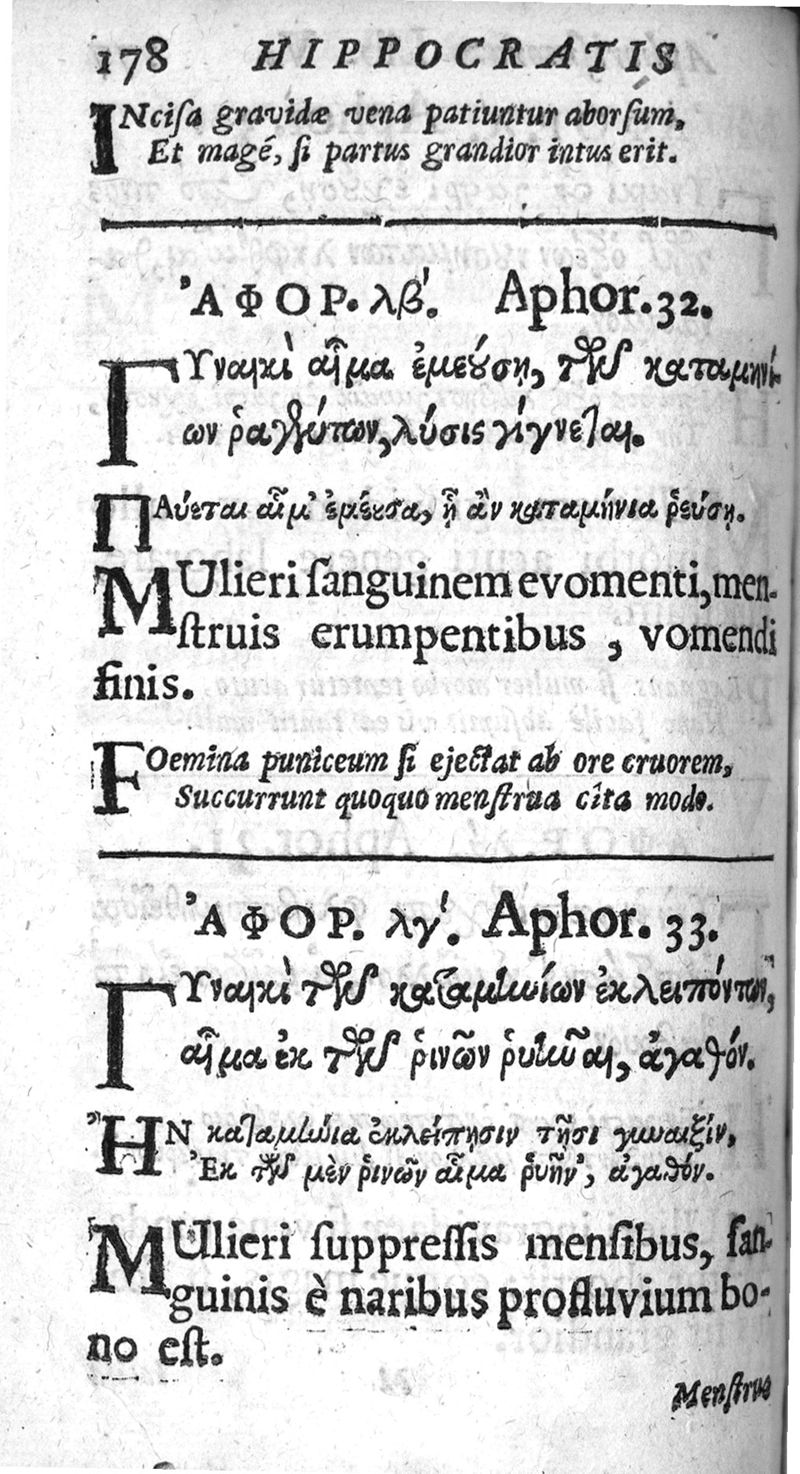 178 HIPPOCRATIS
INcisa gravidæ vena patiuntur aborsum,
Et magé, si partus grandior intus erit.
ἈΦΟΡ. λβ'. Aphor. 32.
ΓΥναικὶ αἷμα ἐμεούσῃ, τῶν καταμηνί-
ων ῥαγέντων, λύσις γίγνεται.
ΠΑύεται αἷμ' ἐμέουσα, ἢ ἂν καταμήνια ῥεύσῃ.
MUlieri sanguinem evomenti, men-
struis erumpentibus, vomendi
finis.
FOemina puniceum si ejectat ab ore cruorem,
Succurrunt quoquo menstrua cita modo.
ἈΦΟΡ. λγ'. Aphor. 33.
ΓΥναικὶ τῶν καταμηνίων ἐκλειπόντων,
αἷμα ἐκ τῶν ῥινῶν ῥυῆναι, ἀγαθόν.
ἪΝ καταμήνια ἐκλείπησιν τῇσι γυναιξίν,
Ἐκ τῶν μὲν ῥινῶν αἷμα ῥυῆν', ἀγαθόν.
MUlieri suppressis mensibus, san-
guinis è naribus profluvium bo-
no est.
Menstrua